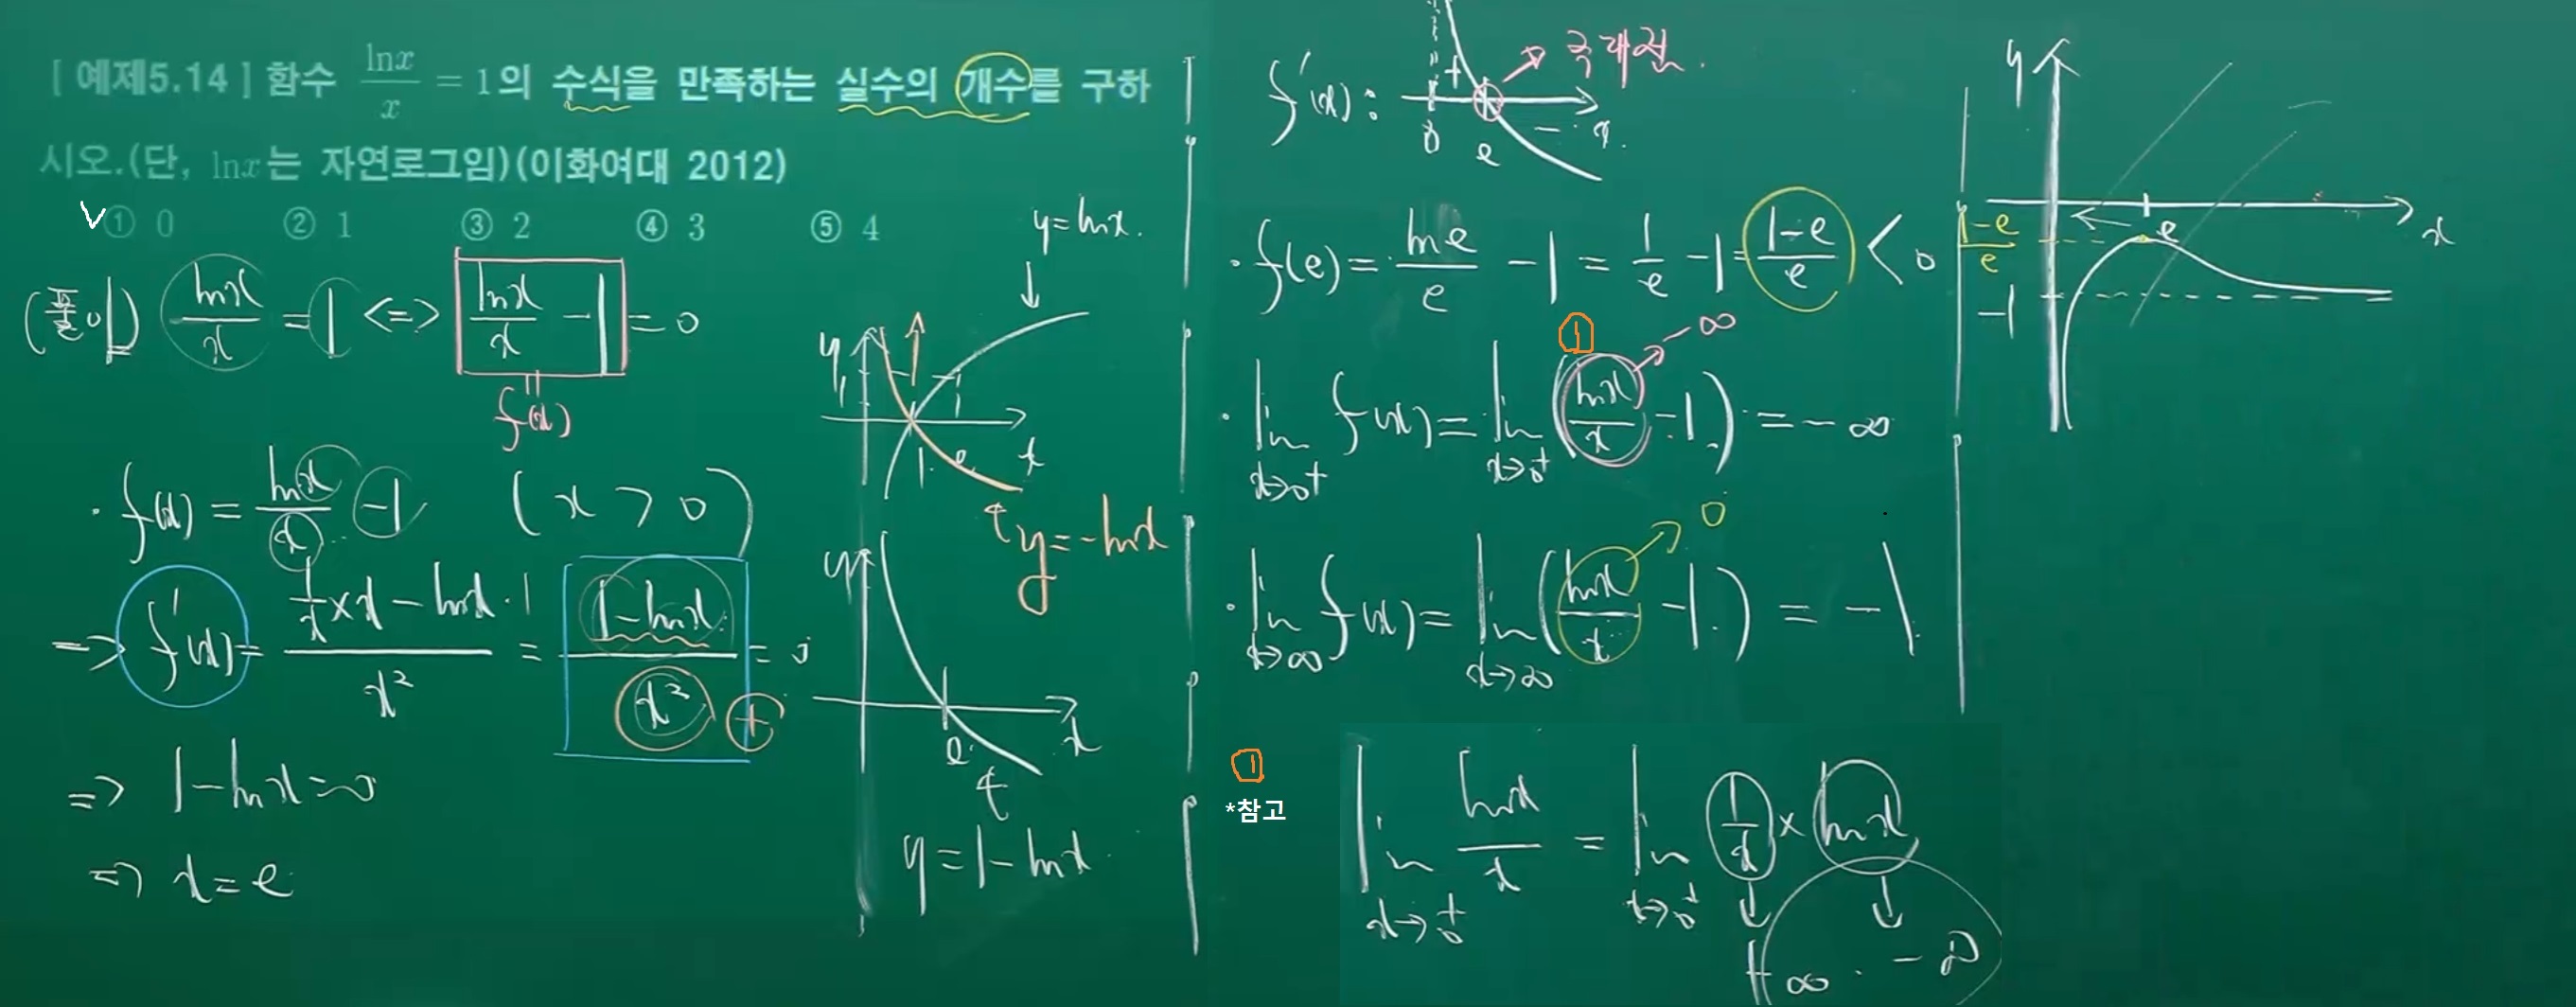 [ 예제5.14 ] 함수 lnx/x = 1의 수식을 만족하는 실수의 개수를 구하
시오.(단, lnx는 자연로그임)(이화여대 2012)
V① 0 ② 1 ③ 2 ④ 3 ⑤ 4
(풀이) lnx/x = 1 <=> lnx/x - 1 = 0
f(x)
· f(x) = lnx/x - 1 (x > 0)
=> f'(x) = (1/x × x - lnx · 1)/x² = (1 - lnx)/x² = 0
+
=> 1 - lnx = 0
=> x = e
y = lnx.
y
1
1 e x
y = -lnx
y
e x
y = 1 - lnx
f'(x) : + - 극대점.
0 e x
· f(e) = lne/e - 1 = 1/e - 1 = (1-e)/e < 0
① -∞
· lim x→0+ f(x) = lim x→0+ (lnx/x - 1) = -∞
0
· lim x→∞ f(x) = lim x→∞ (lnx/x - 1) = -1
①
*참고
lim x→0+ lnx/x = lim x→0+ 1/x × lnx
+∞ · -∞
y
(1-e)/e
e x
-1